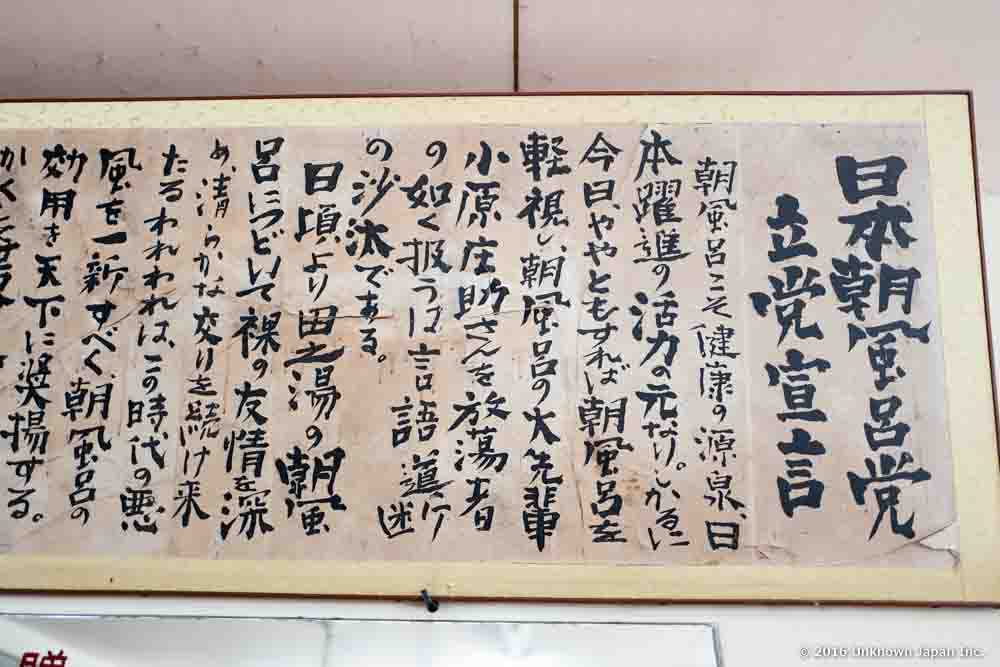 日本朝風呂党
立党宣言
朝風呂こそ健康の源泉、日
本躍進の活力の元なり。しかるに
今日、ややともすれば朝風呂を
軽視し、朝風呂の大先輩
小原庄助さんを放蕩者
の如く扱うは言語道断
の沙汰である。
日頃より田之湯の朝風
呂につどいて裸の友情を深
め、清らかな交りを続け来
たるわれわれは、この時代の悪
風を一新すべく、朝風呂の
効用を天下に奨揚する。
贈
© 2016 Unknown Japan Inc.